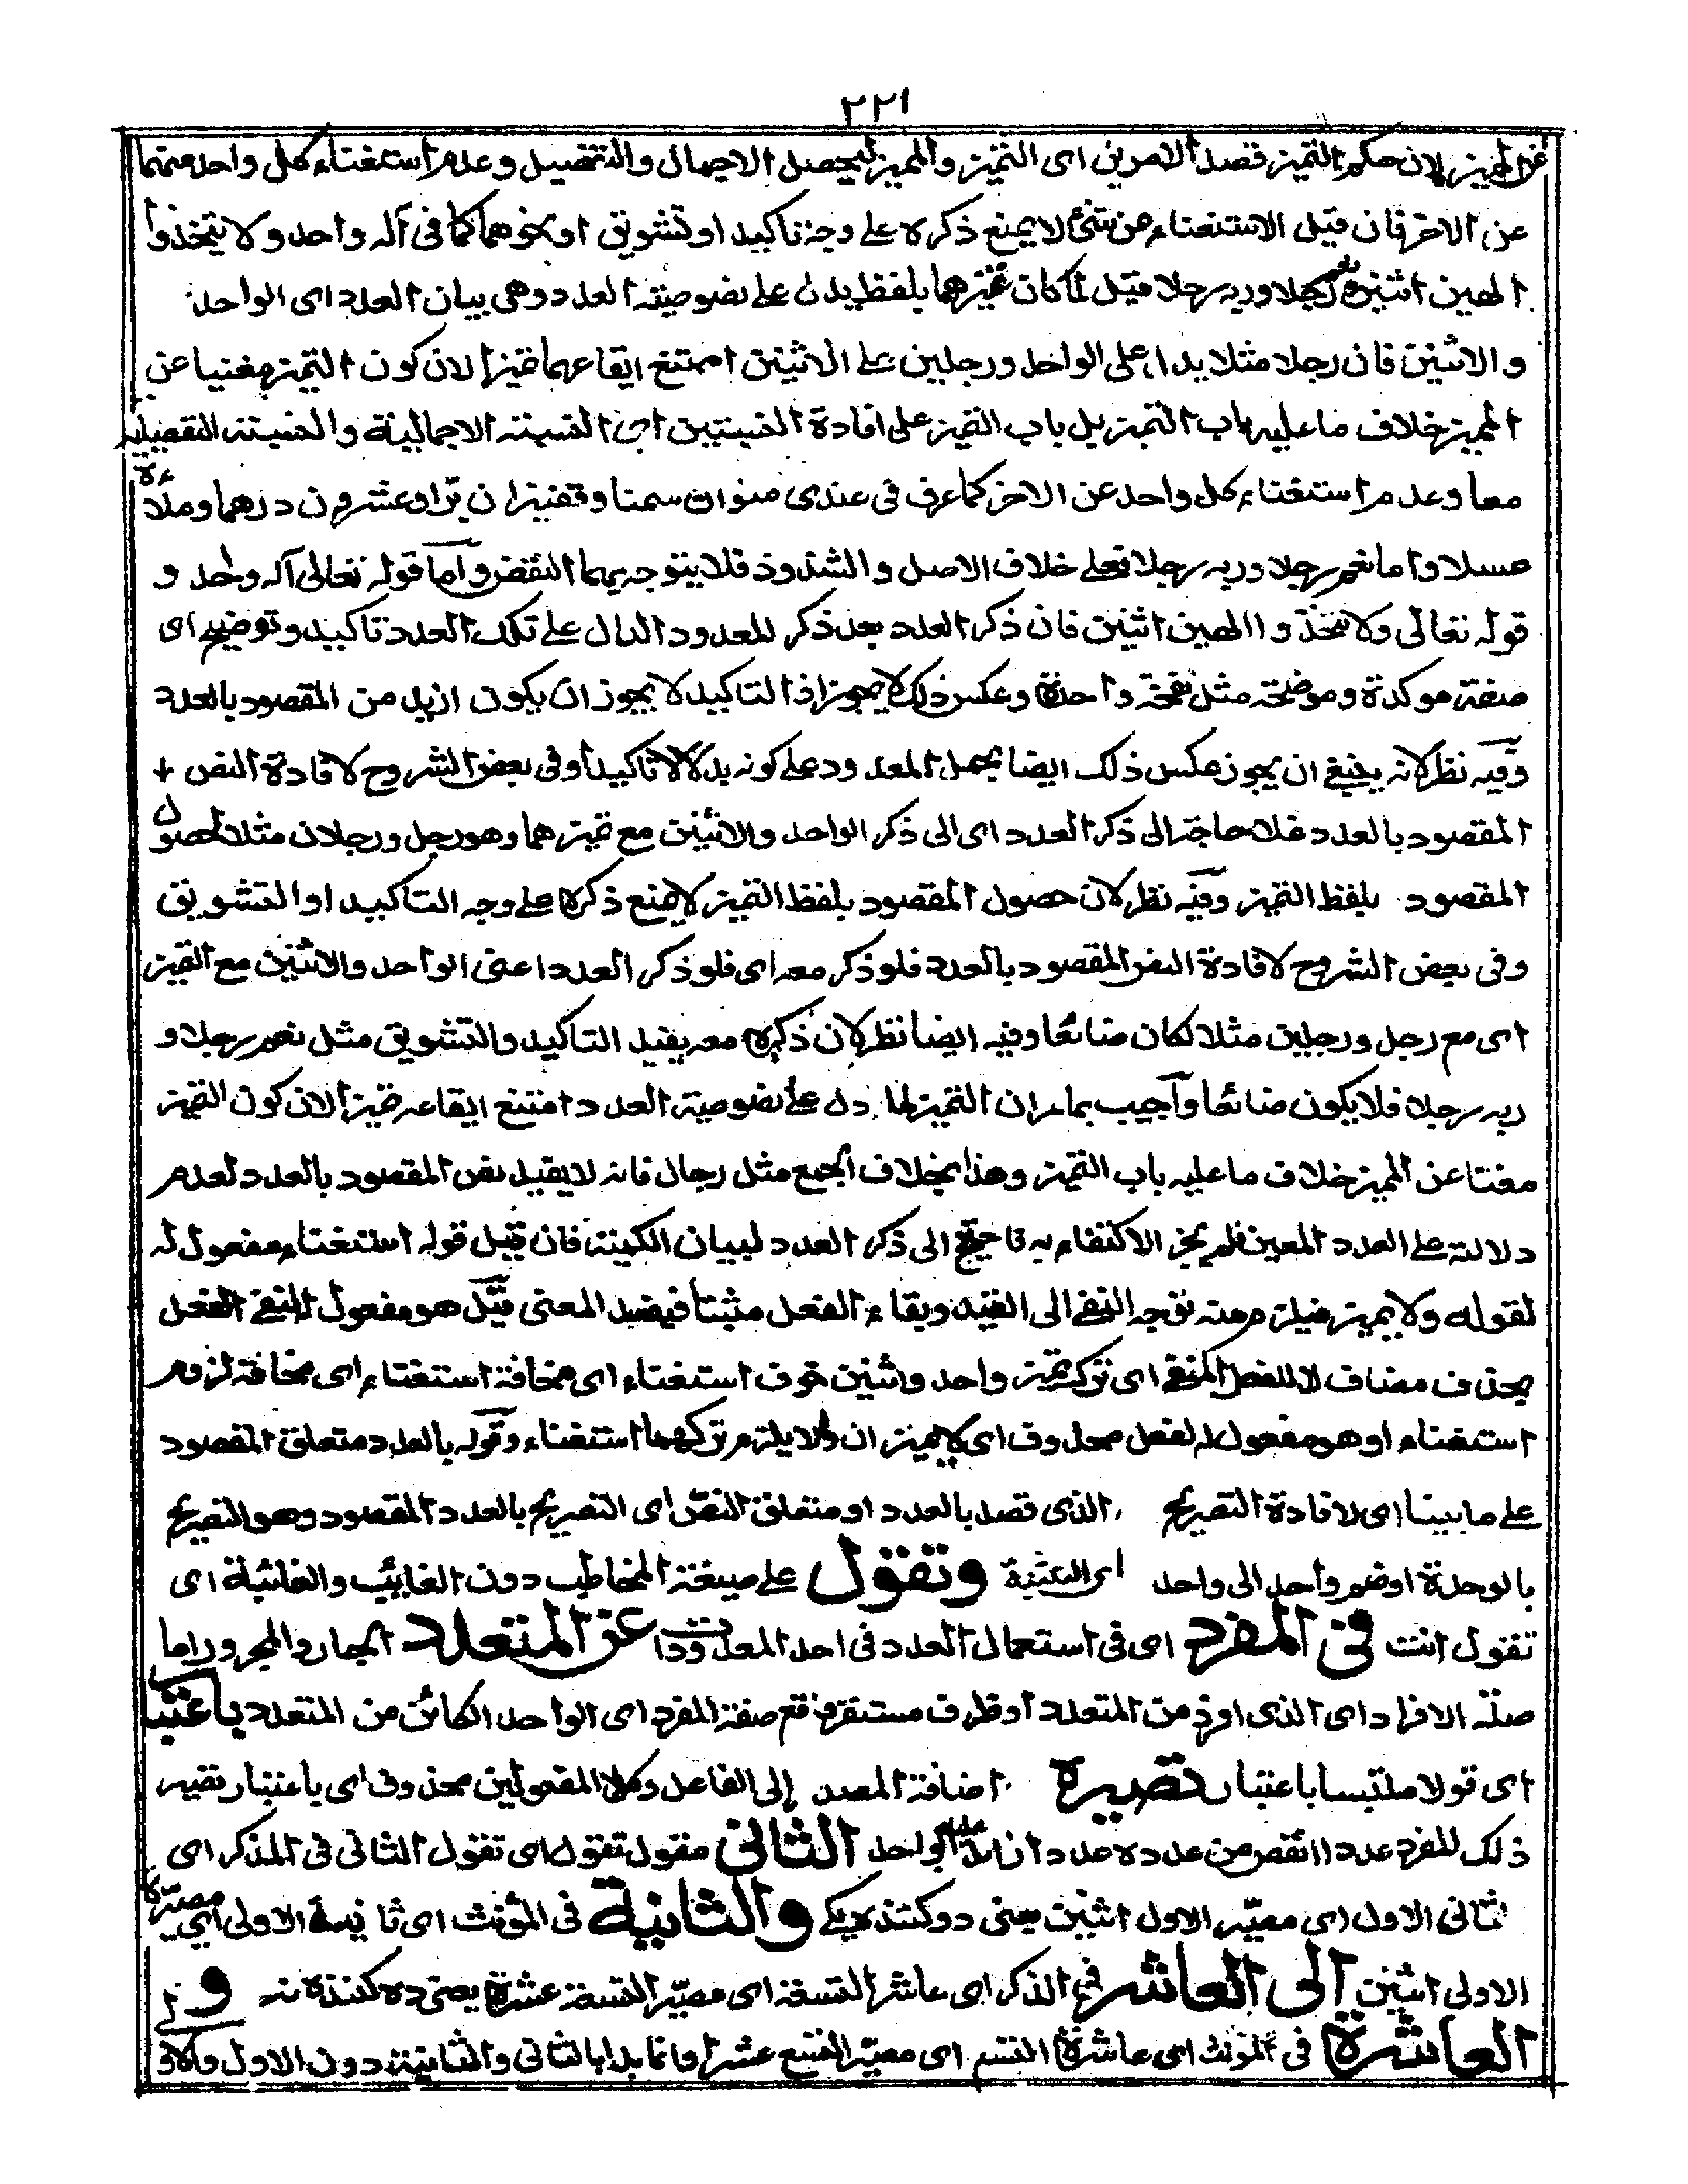 ٢٢١
عن المميز لان حكم التميز قصد الامرين اى التميز والمميز ليحصل الاجمال والتفصيل وعدم استغناء كل واحد منهما
عن الاخر فان قيل الاستغناء من شئ لا يمنع ذكره على وجه تاكيد او تشويق او نحوهما كما فى آله واحد ولا تتخذوا
الهين اثنين ونعم رجلا وربه رجلا قيل لما كان تميزهما بلفظ يدل على نصوصيته العدد وهى بيان العدد اى الواحد
والاثنين فان رجلا مثلا يدل على الواحد ورجلين على الاثنين امتنع ايقاعهما تميزا لان كون التميز مغنيا عن
المميز خلاف ما عليه باب التميز بل باب التميز على افادة النسبتين اى النسبته الاجمالية والنسبته التفصيلية
معا وعدم استغناء كل واحد عن الاخر كما عرف فى عندى منوان سمنا وقفيزان برا وعشرون درهما وملاءه
عسلا واما نعم رجلا وربه رجلا فعلى خلاف الاصل والشذوذ فلا يتوجه بهما النقض واما قوله تعالى آله واحد و
قوله تعالى ولا تتخذوا الهين اثنين فان ذكر العدد بعد ذكر المعدود الدال على تلك العدد تاكيد وتوضيح اى
صفته موكدة وموضحته مثل نفخته واحدة وعكس ذلك لا يجوز اذ التاكيد لا يجوز ان يكون ازيد من المقصود بالعدد
وفيه نظر لانه ينبغى ان يجوز عكس ذلك ايضا بحمل المعدود على كونه بدلا لا تاكيدا وفى بعض الشروح لافادة النص
المقصود بالعدد فلا حاجة الى ذكر العدد اى الى ذكر الواحد والاثنين مع تميزهما وهو رجل ورجلان مثلا لحصول
المقصود بلفظ التميز وفيه نظر لان حصول المقصود بلفظ التميز لا يمنع ذكره على وجه التاكيد او التشويق
وفى بعض الشروح لافادة النص المقصود بالعدد فلو ذكر معه اى فلو ذكر العدد اعنى الواحد والاثنين مع التميز
اى مع رجل ورجلين مثلا لكان ضائعا وفيه ايضا نظر لان ذكره معه يفيد التاكيد والتشويق مثل نعم رجلا و
ربه رجلا فلا يكون ضائعا واجيب بما مر ان التميز لما دل على نصوصية العدد امتنع ايقاعه تميزا لان كون التميز
مغنا عن المميز خلاف ما عليه باب التميز وهذا بخلاف الجمع مثل رجال فانه لا يفيد نص المقصود بالعدد لعدم
دلالته على العدد المعين فلم يجز الاكتفاء به فاحتيج الى ذكر العدد لبيان الكمية فان قيل قوله استغناء مفعول له
لقوله ولا يميز فيلزم منه توجه النفى الى القيد وبقاء الفعل مثبتا فيفسد المعنى قيل هو مفعول له للنفى الفعل
بحذف مضاف لا للفعل المنفى اى ترك تميز واحد واثنين خوف استغناء اى مخافة استغناء اى مخافة لزوم
استغناء او هو مفعول له لفعل محذوف اى لا يميز ان ولا يلزم تركهما استغناء وقوله بالعدد متعلق المقصود
على ما بينا اى لافادة التصريح الذى قصد بالعدد او متعلق النص اى التصريح بالعدد المقصود وهو التصريح
بالوحدة او ضم واحد الى واحد اى التثنية وتقول على صيغة المخاطب دون الغايب والغائبة اى
تقول انت فى المفرد اى فى استعمال العدد فى احد المعدودات عن المتعدد الجار والمجرور اما
صلة الافراد اى الذى افرد من المتعدد او ظرف مستقر وقع صفة المفرد اى الواحد الكائن من المتعدد باعتبار
اى قولا ملتبسا باعتبار تصيره اضافة المصدر الى الفاعل وكلا المفعولين محذوف اى باعتبار تصيره
ذلك المفرد عددا انقص من عدده عددا زايدا عليه الواحد الثانى مقول تقول اى تقول الثانى فى المذكر اى
ثانى الاول اى مصير الاول اثنين يعنى دو كننده يكى والثانية فى المؤنث اى ثانية الاولى اى مصيرة
الاولى اثنين الى العاشر فى المذكر اى عاشر التسعة اى مصير التسعة عشرة يعنى ده كننده نه و الى
العاشرة فى المؤنث اى عاشرة التسع اى مصير التسع عشرا وانما بدا بالثانى والثانية دون الاول والاولى